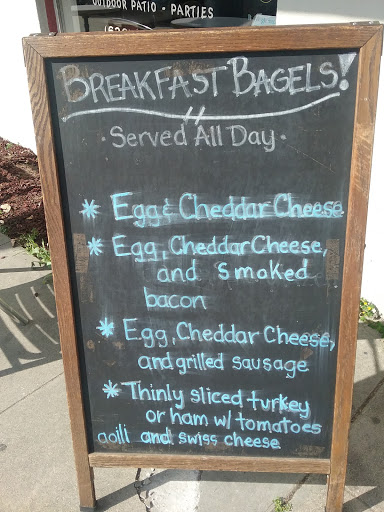 OUTDOOR PATIO - PARTIES
BREAKFAST BAGELS!
· Served All Day ·
* Egg & Cheddar Cheese
* Egg, Cheddar Cheese,
and smoked
bacon
* Egg, Cheddar Cheese,
and grilled sausage
* Thinly sliced turkey
or ham w/ tomatoes
aoili and swiss cheese